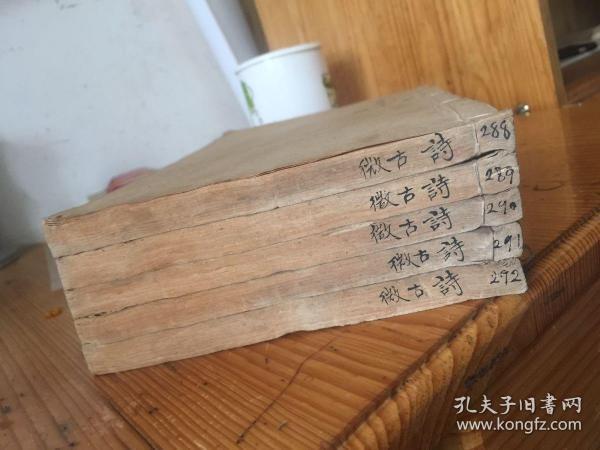 微古 詩 288
微古 詩 289
微古 詩 290
微古 詩 291
微古 詩 292
孔夫子旧書网
www.kongfz.com